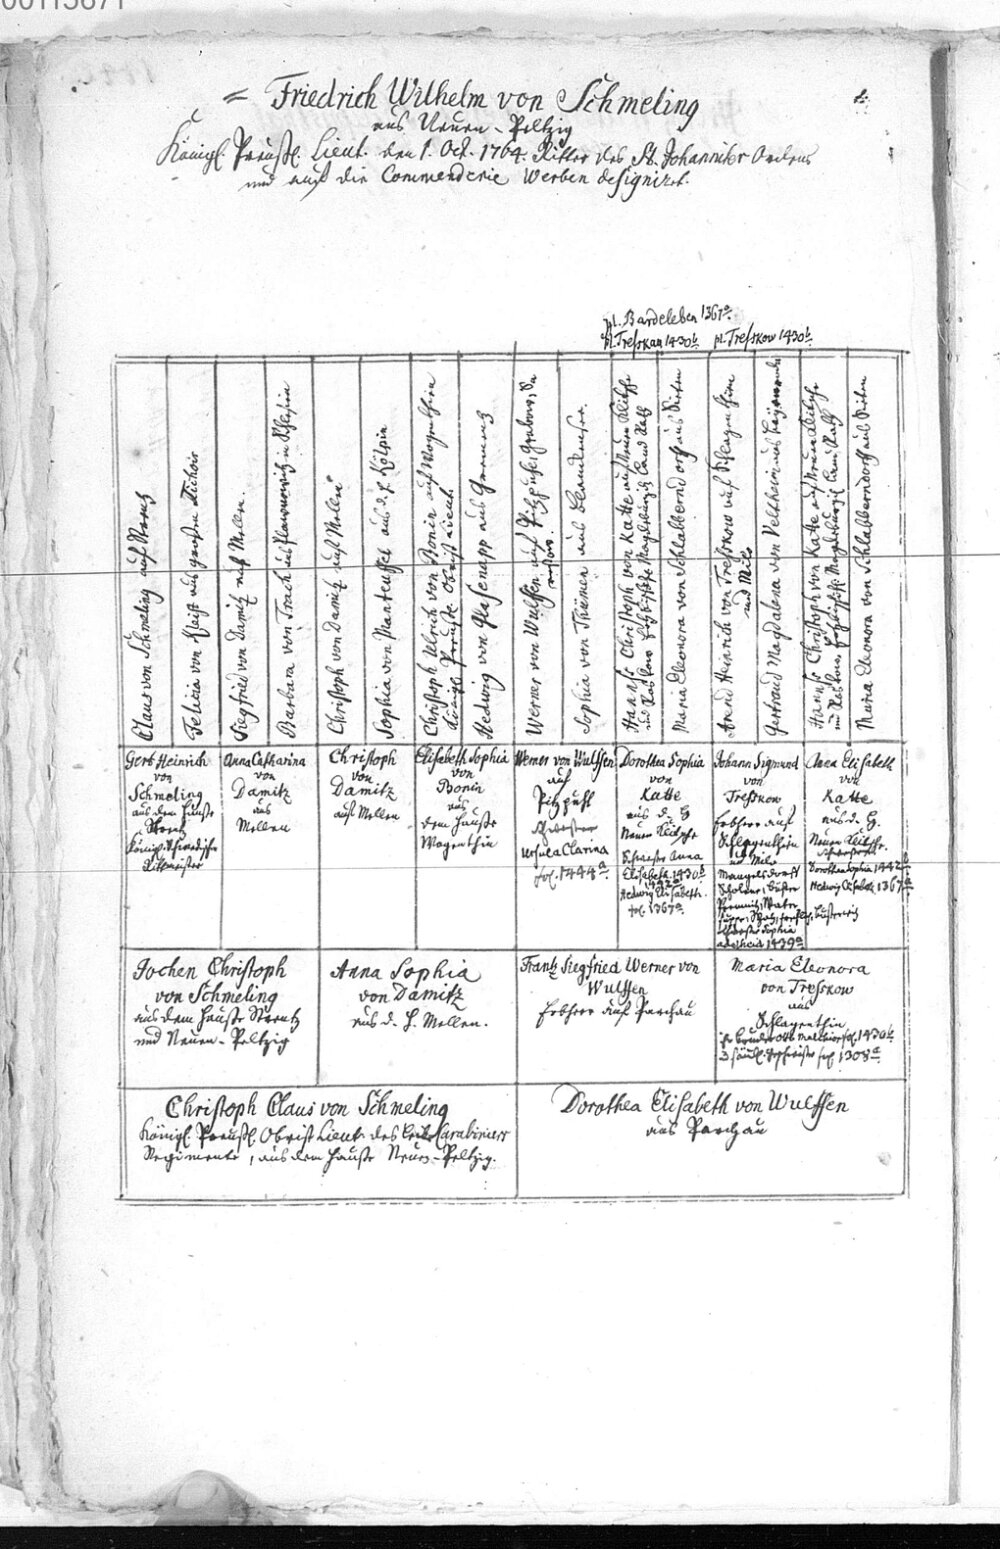 00115671
= Friedrich Wilhelm von Schmeling
aus Neuen-Peltzig
Königl. Preußl. Lieut. den 1. Oct. 1764. Ritter des St. Johanniter Ordens
und auf die Commenderie Werben designiret.
pl. Bardeleben 1367a.
pl. Tresskau 1430b. pl. Tresskow 1430b.
Claus von Schmeling auf
Felicia von Kleist aus großen Tichow
Siegfried von Damitz auf Mellen.
Barbara von Track aus in Schlesien
Christoph von Damitz auf Mellen
Sophia von Manteuffel aus d. H. Kölpin
Christoph Ulrich von Bonin auf Wogenthin
Königl. Preuß. Obrist Lieut.
Hedwig von Glasenapp aus Gramenz
Werner von Wulffen auf Pitzpuhl, Grabow,
Sophia von Thümen aus Blanckensee.
Hanns Christoph von Katte auf Neuen Klitsche
Magdeburgl. Land Rath
Maria Eleonora von Schlabberndorf aus
Arend Heinrich von Tresskow auf Schlagenthin
und Milo
Gertraud Magdalena von Veltheim aus
Hanns Christoph von Katte auf Neuen Klitsche
Magdeburgl. Land Rath
Maria Eleonora von Schlabberndorf aus
Gerb Heinrich
von
Schmeling
aus dem Hauße
Königl. Schwedischer
Rittmeister
Anna Catharina
von
Damitz
aus
Mellen
Christoph
von
Damitz
auf Mellen
Elisabeth Sophia
von
Bonin
aus
dem Hauße
Wogenthin
Werner von Wulffen
auf
Pitzpuhl
Schwester
Ursula Clarina
fol. 1444a
Dorothea Sophia
von
Katte
aus d. H.
Neuen Klitsche
Schwester Anna
Elisabeth 1430b
1442b
Hedwig Elisabeth
fol. 1367a.
Johann Sigmund
von
Tresskow
Erbherr auf
Schlagenthin
und Milo
Sophia
Adelheid 1439a
Anna Elisabeth
von
Katte
aus d. H.
Neuen Klitsche.
Schwester
Dorothea Sophia 1442b
Hedwig Elisabeth 1367a
Jochen Christoph
von Schmeling
aus dem Hauße
und Neuen-Peltzig
Anna Sophia
von Damitz
aus d. H. Mellen.
Frantz Siegfried Werner von
Wulffen
Erbherr auf Parchau
Maria Eleonora
von Tresskow
aus
Schlagenthin
ihr Bruder Otto Melchior fol. 1430b
fol. 1308a
Christoph Claus von Schmeling
Königl. Preußl. Obrist Lieut. des Leib Carabiniers
Regiments, aus dem Hauße Neuen-Peltzig.
Dorothea Elisabeth von Wulffen
aus Parchau